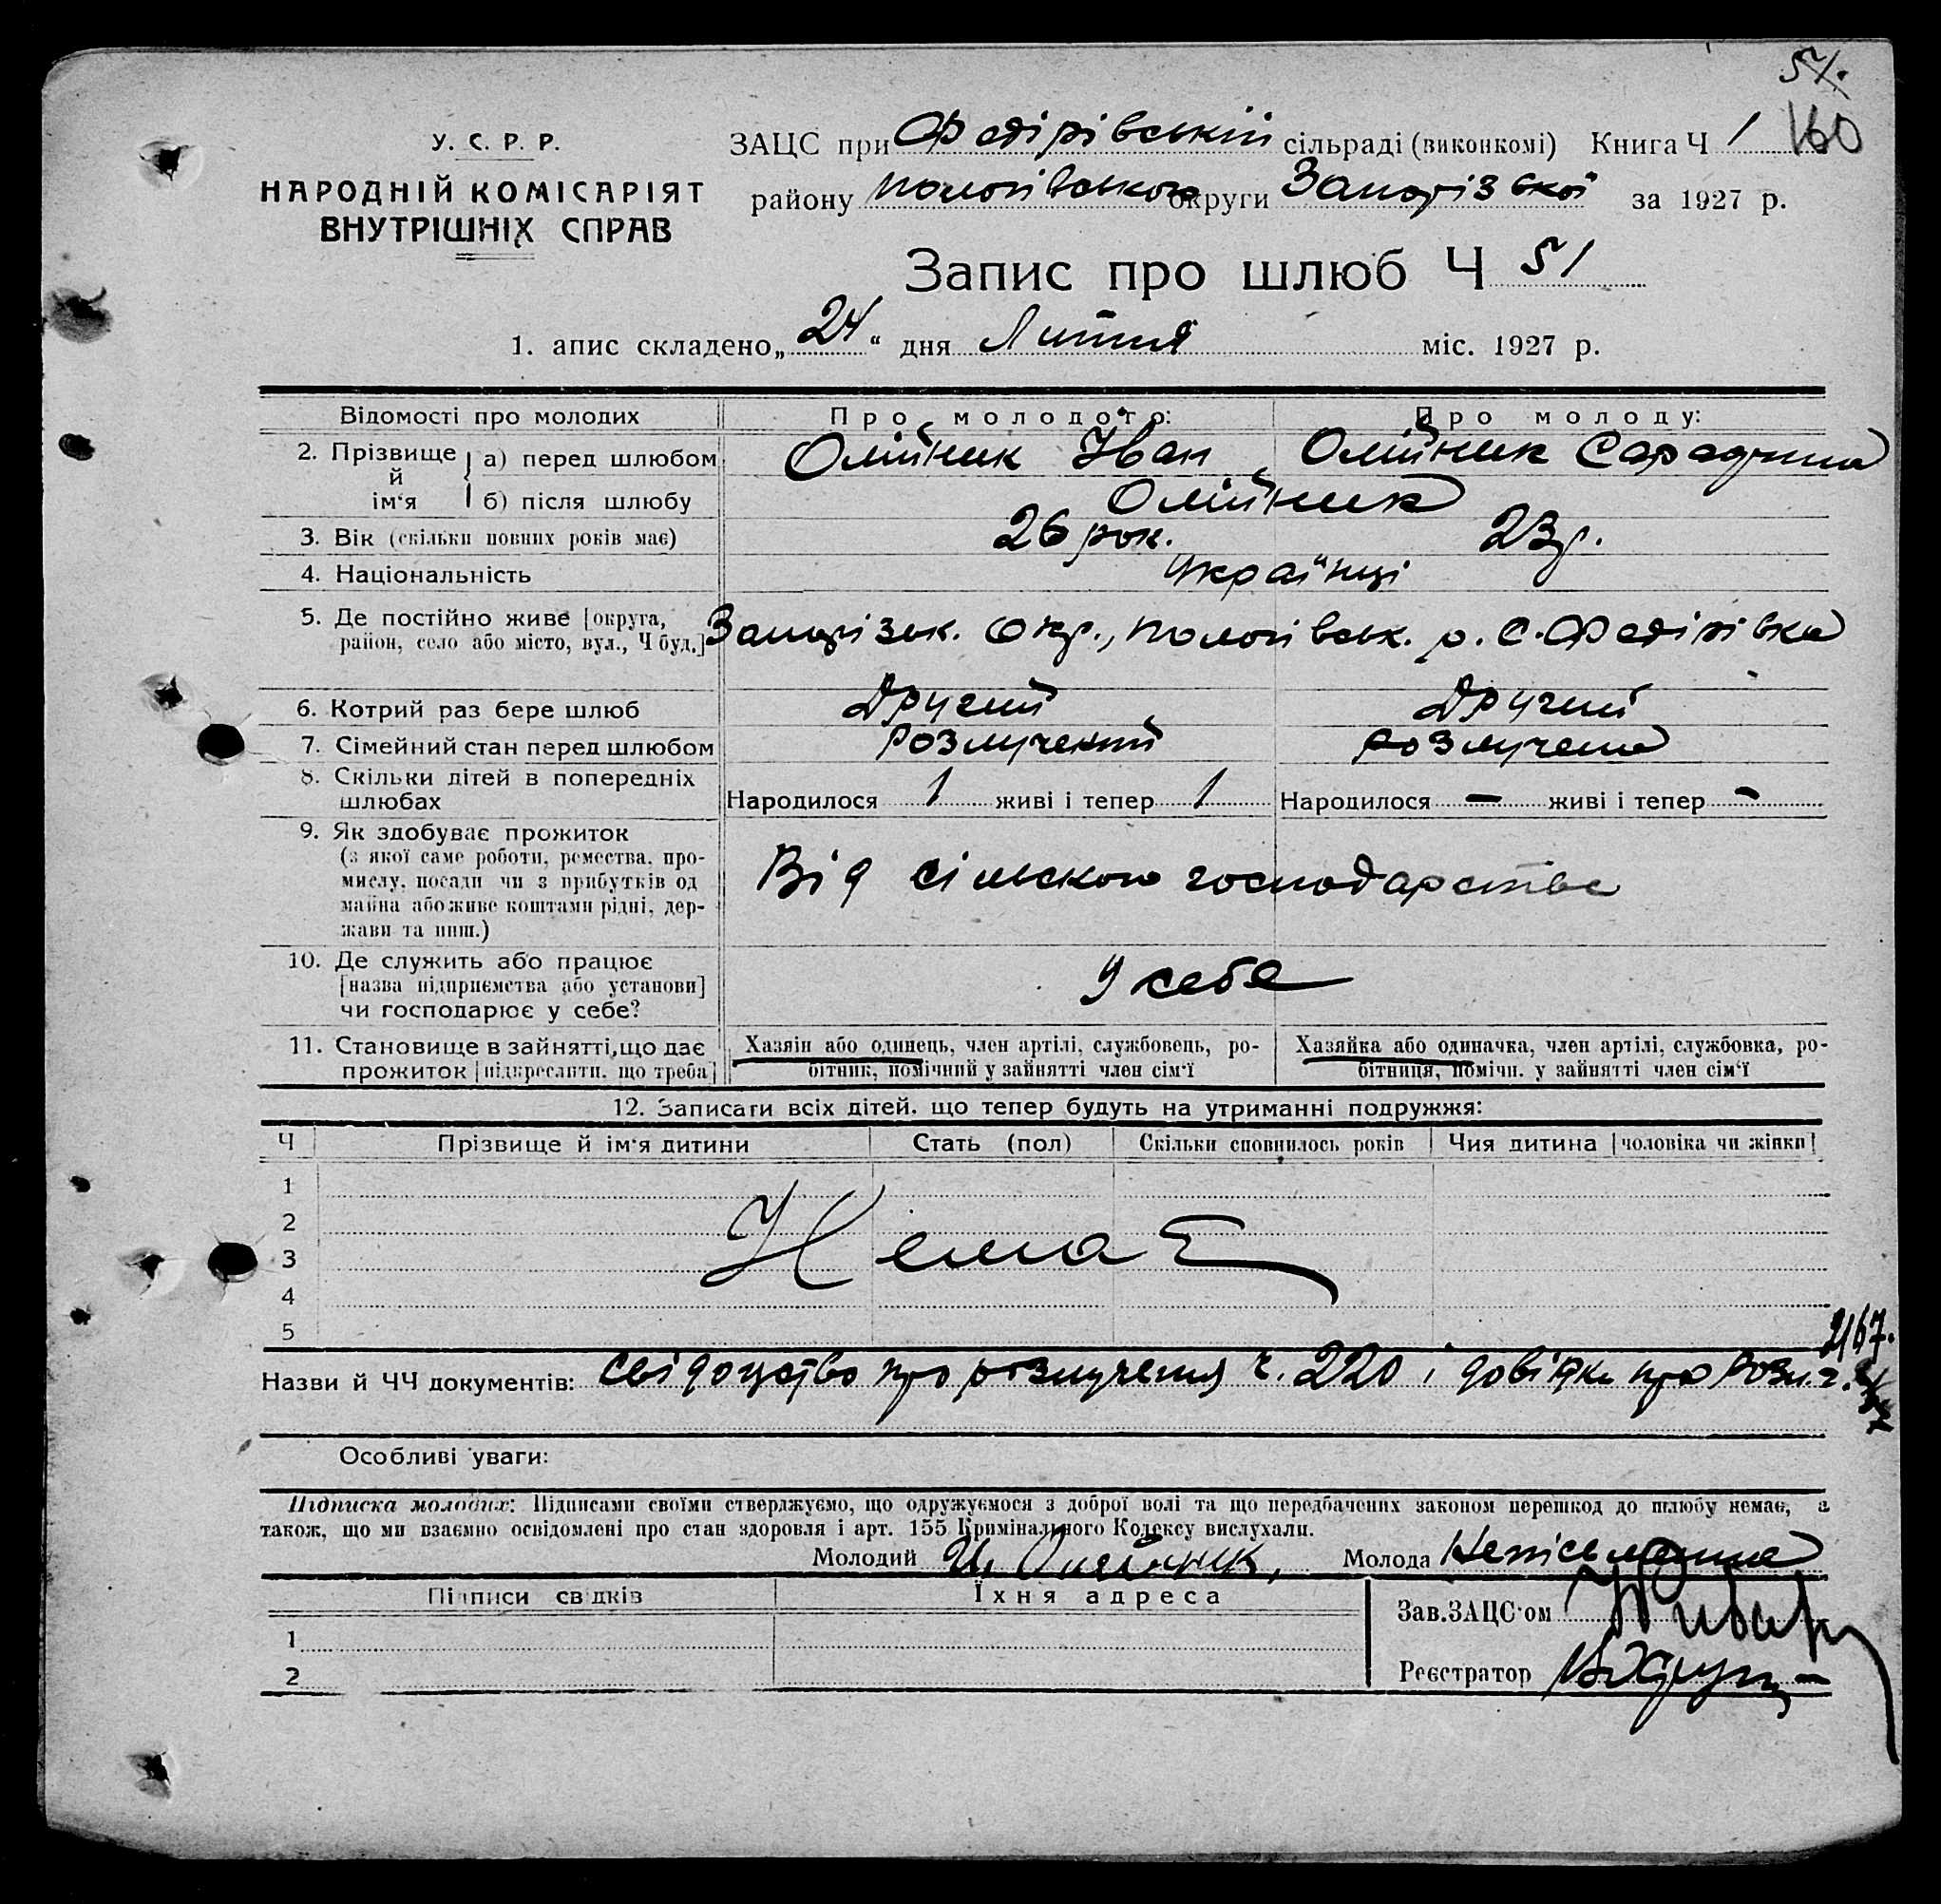 51.
160
У. С. Р. Р.
НАРОДНІЙ КОМІСАРІЯТ
ВНУТРІШНІХ СПРАВ
ЗАЦС при Федірівській сільраді (виконкомі) Книга Ч 1
району Пологівського округи Запорізької за 1927 р.
Запис про шлюб Ч 51
1. апис складено „ 24 “ дня Лютня міс. 1927 р.
Відомості про молодих Про молодого: Про молоду:
2. Прізвище й ім‘я а) перед шлюбом Олійник Іван Олійник
б) після шлюбу Олійник
3. Вік (скільки повних років має) 26 рок. 23 р.
4. Національність Українці
5. Де постійно живе [округа,
район, село або місто, вул., Ч буд.] Запорізьк. окр., Пологівськ. р. с. Федірівка
6. Котрий раз бере шлюб Другий Другий
7. Сімейний стан перед шлюбом Розлучений розлучена
8. Скільки дітей в попередніх
шлюбах Народилося 1 живі і тепер 1 Народилося — живі і тепер -
9. Як здобуває прожиток
(з якої саме роботи, ремества, про-
мислу, посади чи з прибутків од
майна або живе коштами рідні, дер-
жави та инш.) Від сільского господарства
10. Де служить або працює
[назва підприємства або установи]
чи господарює у себе? У себе
11. Становище в зайнятті, що дає
прожиток [підкреслити, що треба]
Хазяїн або одинець, член артілі, службовець, ро-
бітник, помічний у зайнятті член сім‘ї
Хазяйка або одиначка, член артілі, службовка, ро-
бітниця, помічн. у зайнятті член сім‘ї
12. Записати всіх дітей, що тепер будуть на утриманні подружжя:
Ч Прізвище й ім‘я дитини Стать (пол) Скільки сповнилось років Чия дитина [чоловіка чи жінки]
1
2
3 Немає
4
5
Назви й ЧЧ документів: свідоцтво про розлучення ч. 220 і довідка про розл. ч.
Особливі уваги:
Підписка молодих: Підписами своїми стверджуємо, що одружуємося з доброї волі та що передбачених законом перешкод до шлюбу немає, а
також, що ми взаємно освідомлені про стан здоровля і арт. 155 Кримінального Кодексу вислухали.
Молодий И. Олейник, Молода Неписьменна
Підписи свідків Їхня адреса
Зав. ЗАЦС‘ом
1
Реєстратор
2